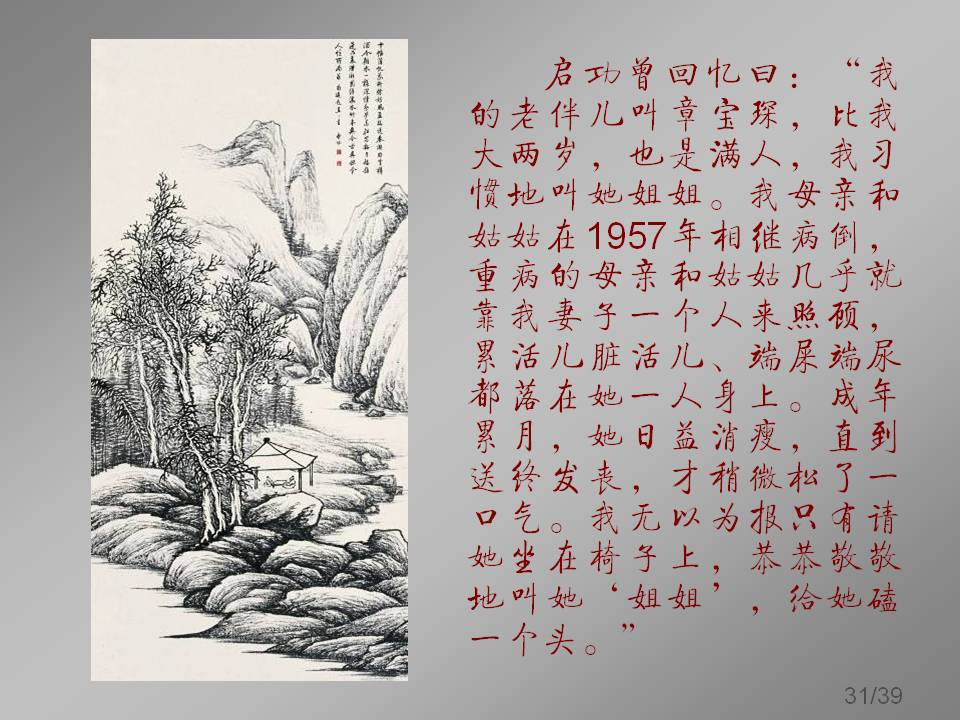 启功曾回忆曰：“我
的老伴儿叫章宝琛，比我
大两岁，也是满人，我习
惯地叫她姐姐。我母亲和
姑姑在1957年相继病倒，
重病的母亲和姑姑几乎就
靠我妻子一个人来照顾，
累活儿脏活儿、端屎端尿
都落在她一人身上。成年
累月，她日益消瘦，直到
送终发丧，才稍微松了一
口气。我无以为报只有请
她坐在椅子上，恭恭敬敬
地叫她‘姐姐’，给她磕
一个头。”
31/39